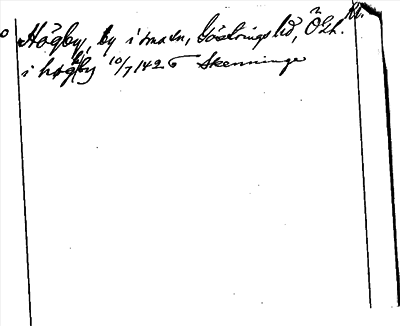 Högby, by i sma sn, Göstrings hd, Ögl. Kr.
i høgby 10/7 1426 Skenninge